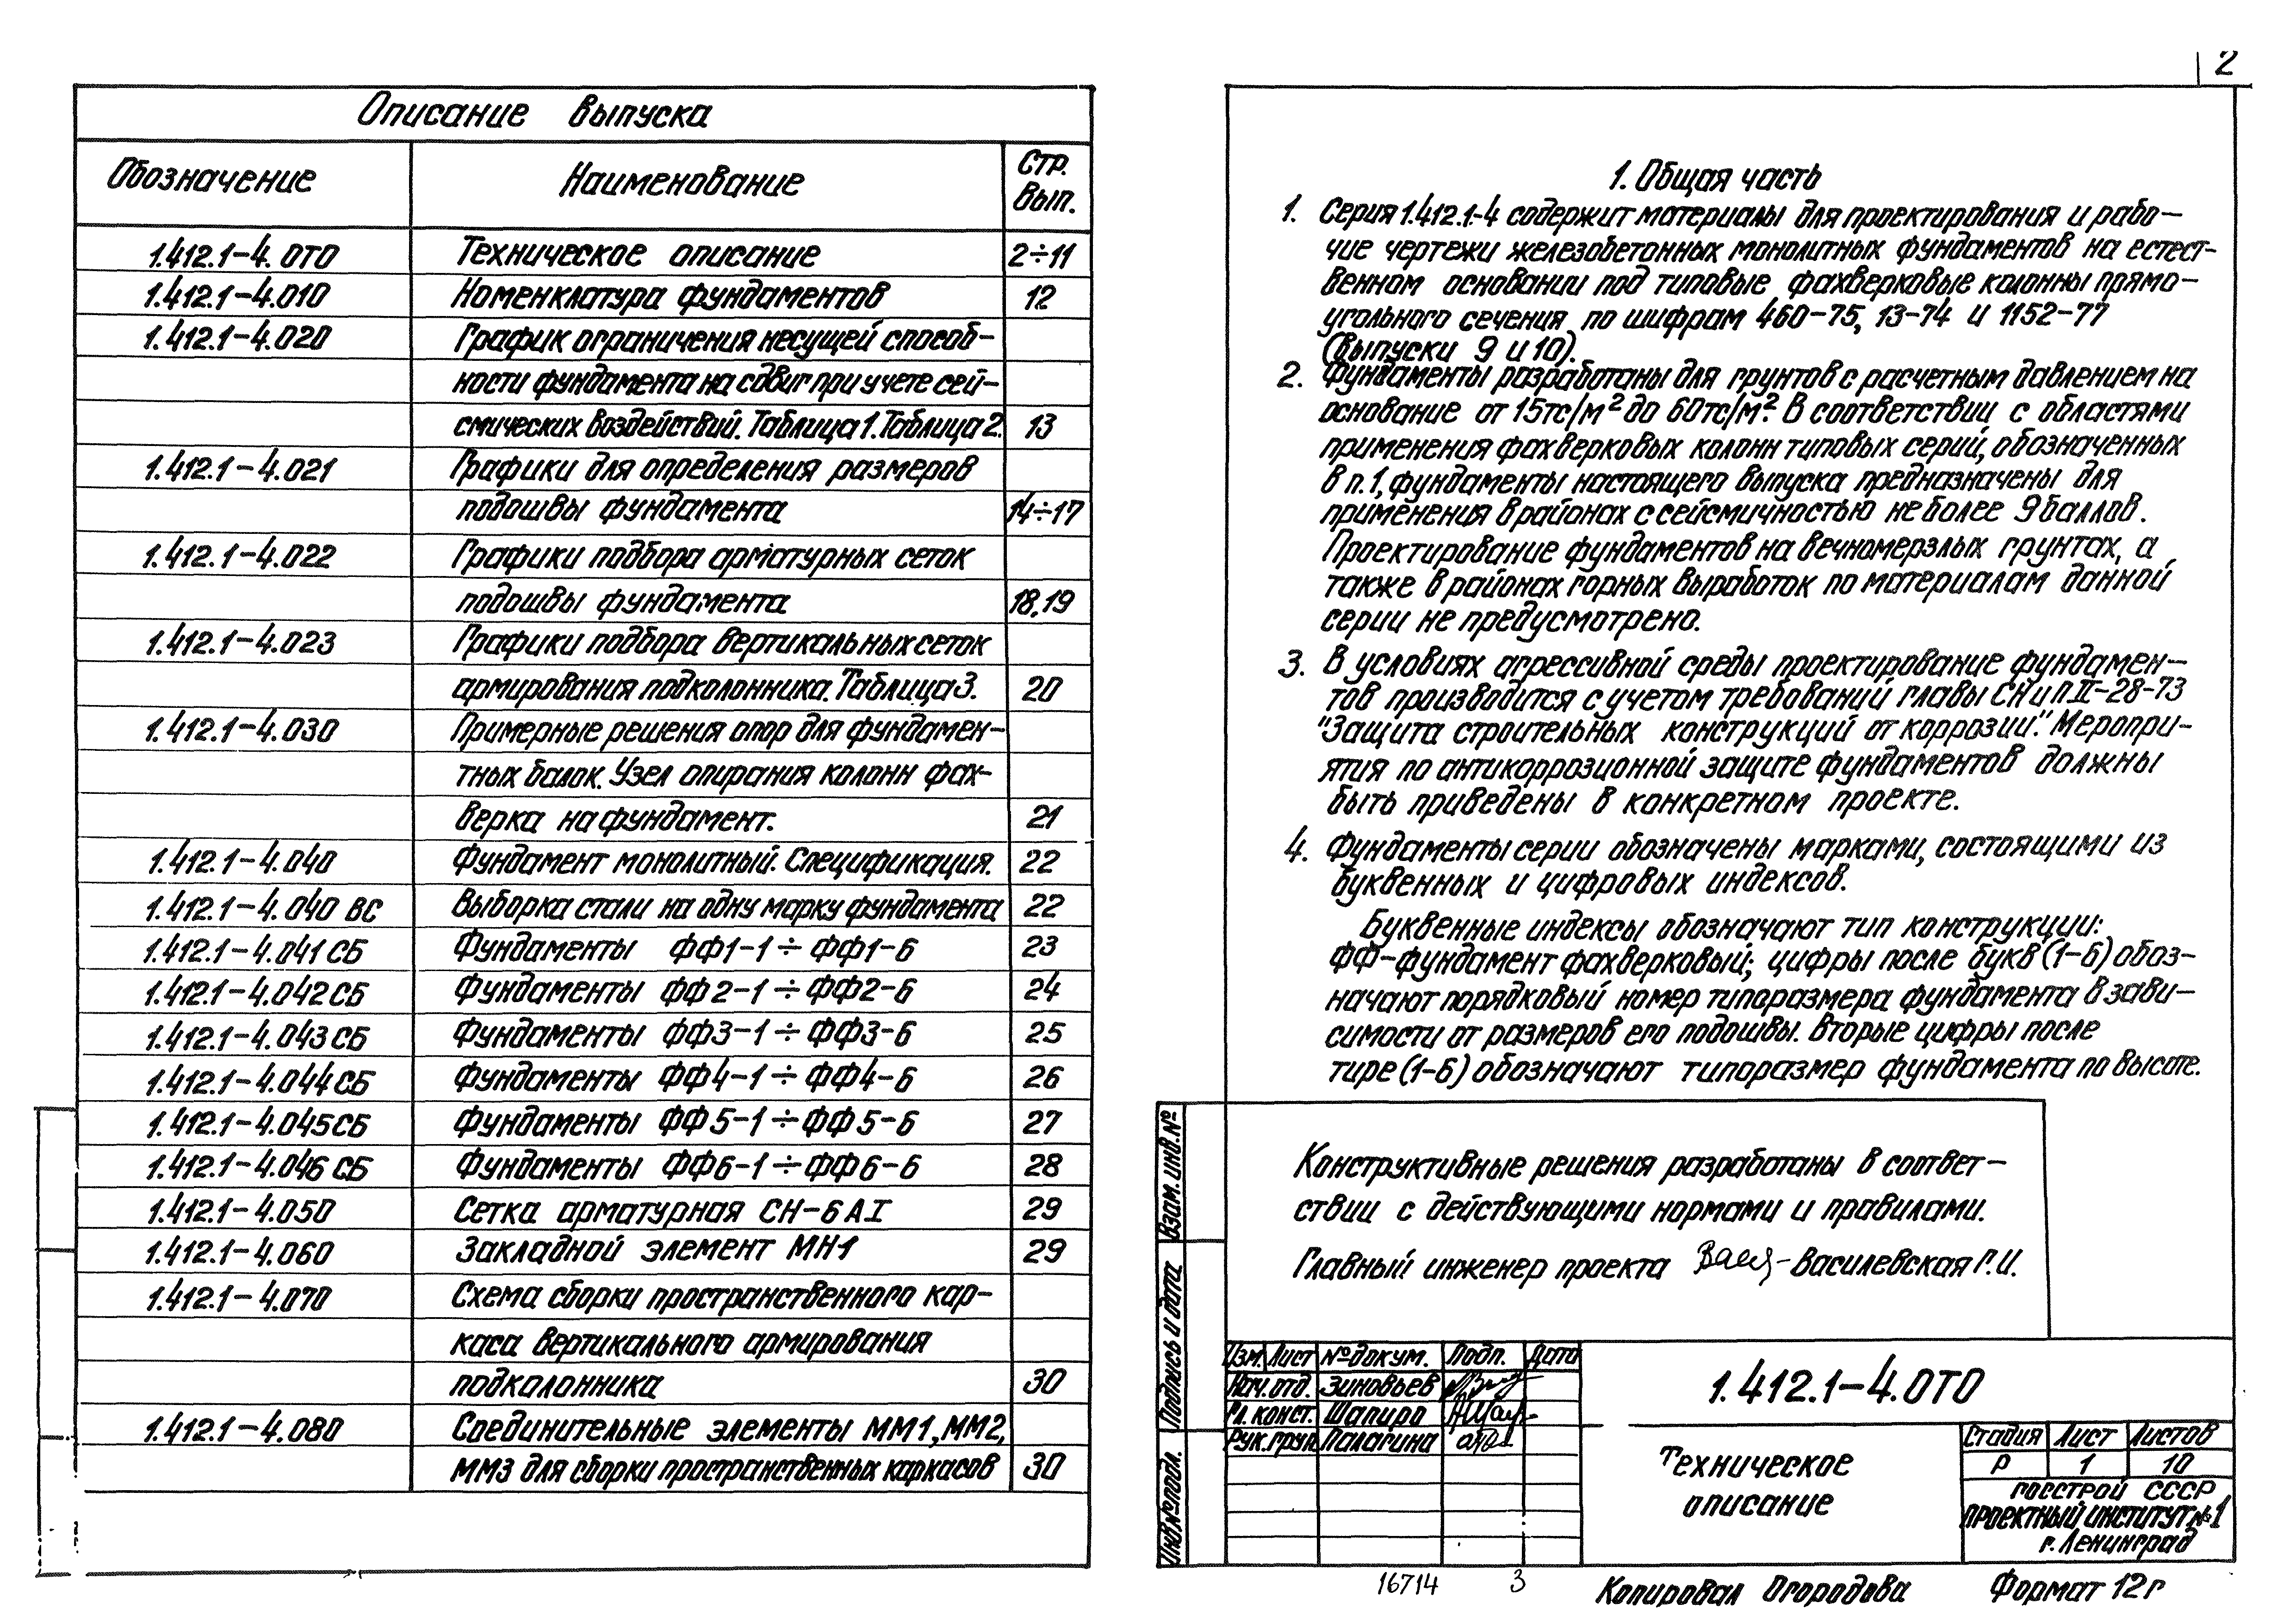 2
Описание выпуска
Обозначение Наименование Стр. вып.
1.412.1-4.0ТО Техническое описание 2÷11
1.412.1-4.010 Номенклатура фундаментов 12
1.412.1-4.020 График ограничения несущей способ-
ности фундамента на сдвиг при учете сей-
смических воздействий. Таблица 1. Таблица 2. 13
1.412.1-4.021 Графики для определения размеров
подошвы фундамента 14÷17
1.412.1-4.022 Графики подбора арматурных сеток
подошвы фундамента 18,19
1.412.1-4.023 Графики подбора вертикальных сеток
армирования подколонника. Таблица 3. 20
1.412.1-4.030 Примерные решения опор для фундамен-
тных балок. Узел опирания колонн фах-
верка на фундамент. 21
1.412.1-4.040 Фундамент монолитный. Спецификация. 22
1.412.1-4.040 ВС Выборка стали на одну марку фундамента 22
1.412.1-4.041 СБ Фундаменты ФФ1-1÷ФФ1-6 23
1.412.1-4.042 СБ Фундаменты ФФ2-1÷ФФ2-6 24
1.412.1-4.043 СБ Фундаменты ФФ3-1÷ФФ3-6 25
1.412.1-4.044 СБ Фундаменты ФФ4-1÷ФФ4-6 26
1.412.1-4.045 СБ Фундаменты ФФ5-1÷ФФ5-6 27
1.412.1-4.046 СБ Фундаменты ФФ6-1÷ФФ6-6 28
1.412.1-4.050 Сетка арматурная СН-6АI 29
1.412.1-4.060 Закладной элемент МН1 29
1.412.1-4.070 Схема сборки пространственного кар-
каса вертикального армирования
подколонника 30
1.412.1-4.080 Соединительные элементы ММ1, ММ2,
ММ3 для сборки пространственных каркасов 30
1. Общая часть
1. Серия 1.412.1-4 содержит материалы для проектирования и рабо-
чие чертежи железобетонных монолитных фундаментов на естест-
венном основании под типовые фахверковые колонны прямо-
угольного сечения по шифрам 460-75, 13-74 и 1152-77
(выпуски 9 и 10).
2. Фундаменты разработаны для грунтов с расчетным давлением на
основание от 15тс/м² до 60тс/м². В соответствии с областями
применения фахверковых колонн типовых серий, обозначенных
в п.1, фундаменты настоящего выпуска предназначены для
применения в районах с сейсмичностью не более 9 баллов.
Проектирование фундаментов на вечномерзлых грунтах, а
также в районах горных выработок по материалам данной
серии не предусмотрено.
3. В условиях агрессивной среды проектирование фундамен-
тов производится с учетом требований главы СНиП II-28-73
"Защита строительных конструкций от коррозии". Меропри-
ятия по антикоррозионной защите фундаментов должны
быть приведены в конкретном проекте.
4. Фундаменты серии обозначены марками, состоящими из
буквенных и цифровых индексов.
Буквенные индексы обозначают тип конструкции:
ФФ-фундамент фахверковый; цифры после букв (1-6) обоз-
начают порядковый номер типоразмера фундамента в зави-
симости от размеров его подошвы. Вторые цифры после
тире (1-6) обозначают типоразмер фундамента по высоте.
Конструктивные решения разработаны в соответ-
ствии с действующими нормами и правилами.
Главный инженер проекта Василевская Г.И.
Взам. инв. №
Подпись и дата
Инв № подл.
Изм. Лист № докум. Подп. Дата
Нач. отд. Зиновьев
Гл. конст. Шапиро
Рук. груп. Палагина
1.412.1-4.0ТО
Техническое
описание
Стадия Лист Листов
Р 1 10
ГОССТРОЙ СССР
ПРОЕКТНЫЙ ИНСТИТУТ №1
г. Ленинград
16714 3
Копировал Огородова Формат 12г